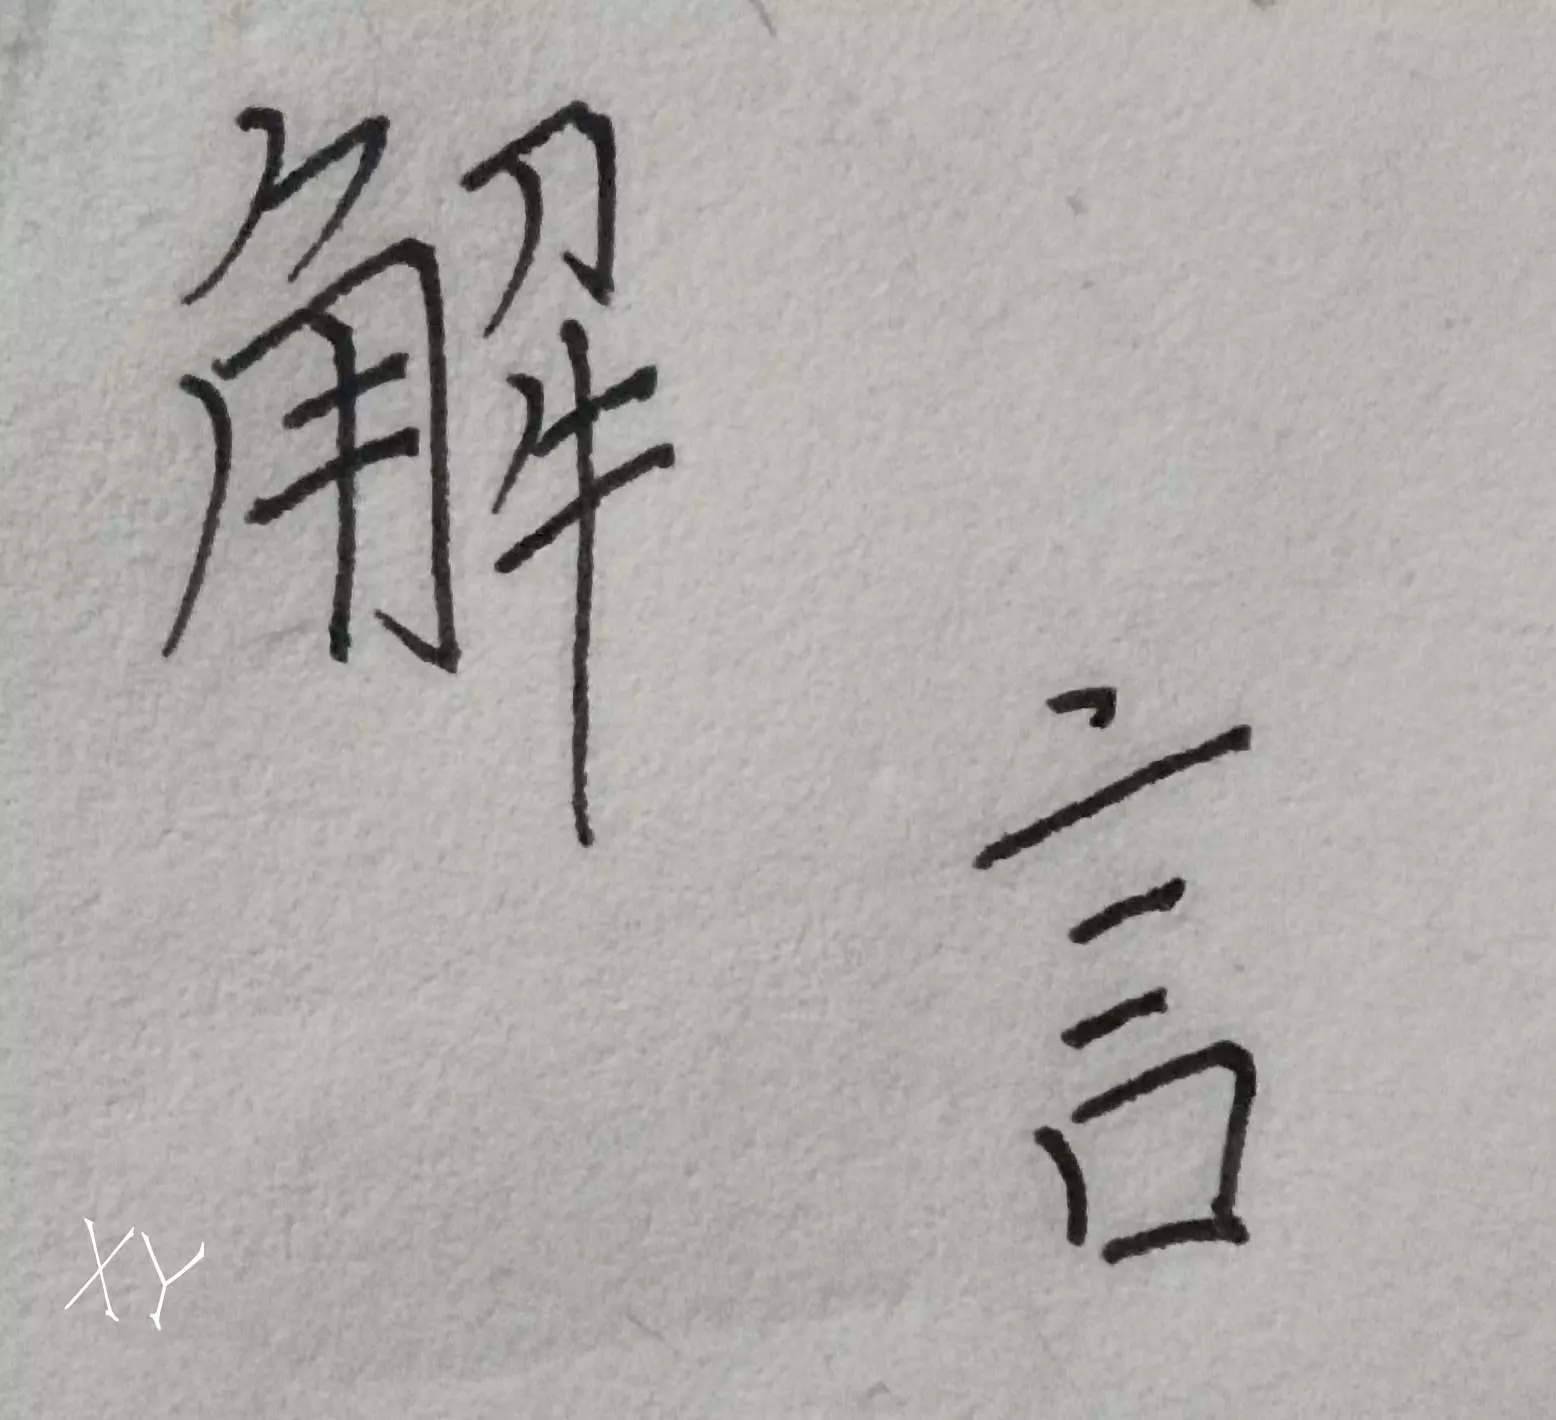 解
言
XY